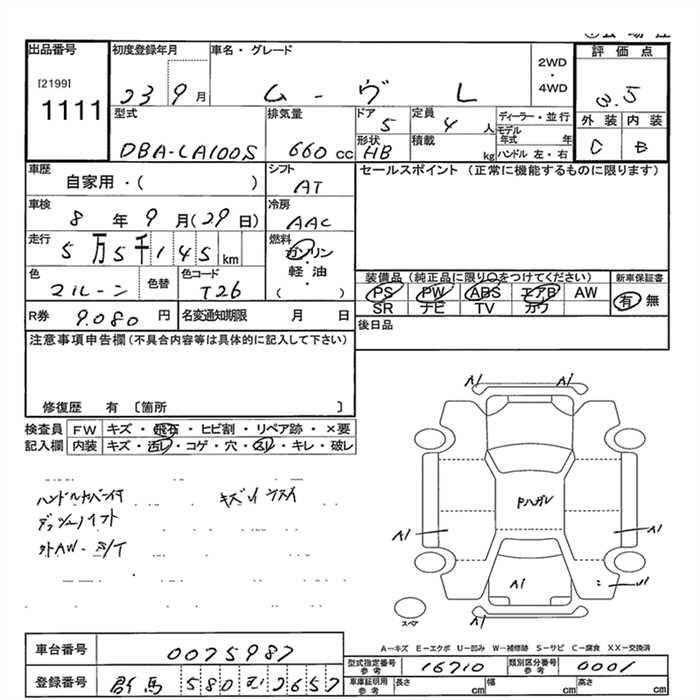 出品番号
[2199]
1111
初度登録年月
23 9月
車名・グレード
ムーヴ L
2WD
・
4WD
評価点
3.5
外装 内装
C B
型式
DBA-LA100S
排気量
660 cc
ドア
5
形状
HB
定員
4 人
積載
kg
ディーラー・並行
モデル年式 年
ハンドル 左・右
車歴
自家用・( )
シフト
AT
セールスポイント (正常に機能するものに限ります)
車検
8年 9月(29日)
冷房
AAC
走行
5万5千145km
燃料
ガソリン
・
軽・油
( ・ )
色
マルーン
色替
色コード
T26
装備品 (純正品に限り○をつけてください)
PS PW ABS エアB AW
SR ナビ TV カワ
新車保証書
有 無
R券 9.080 円
名変通知期限 月 日
後日品
注意事項申告欄(不具合内容等は具体的に記入して下さい)
修復歴 有 〔箇所 〕
検査員 FW キズ・飛石・ヒビ割・リペア跡・×要
記入欄 内装 キズ・汚レ・コゲ・穴・スレ・キレ・破レ
ハンドルカバー付
外AW
キズ
A1 A1
A1 A1
A1
A1
スペア
A-キズ E-エクボ U-凹み W-補修跡 S-サビ C-腐食 XX-交換済
車台番号 0075987
登録番号 群馬 580 む 2657
型式指定番号
参考
16710
類別区分番号
参考
0001
車庫証明用
参考
長さ cm 幅 cm 高さ cm